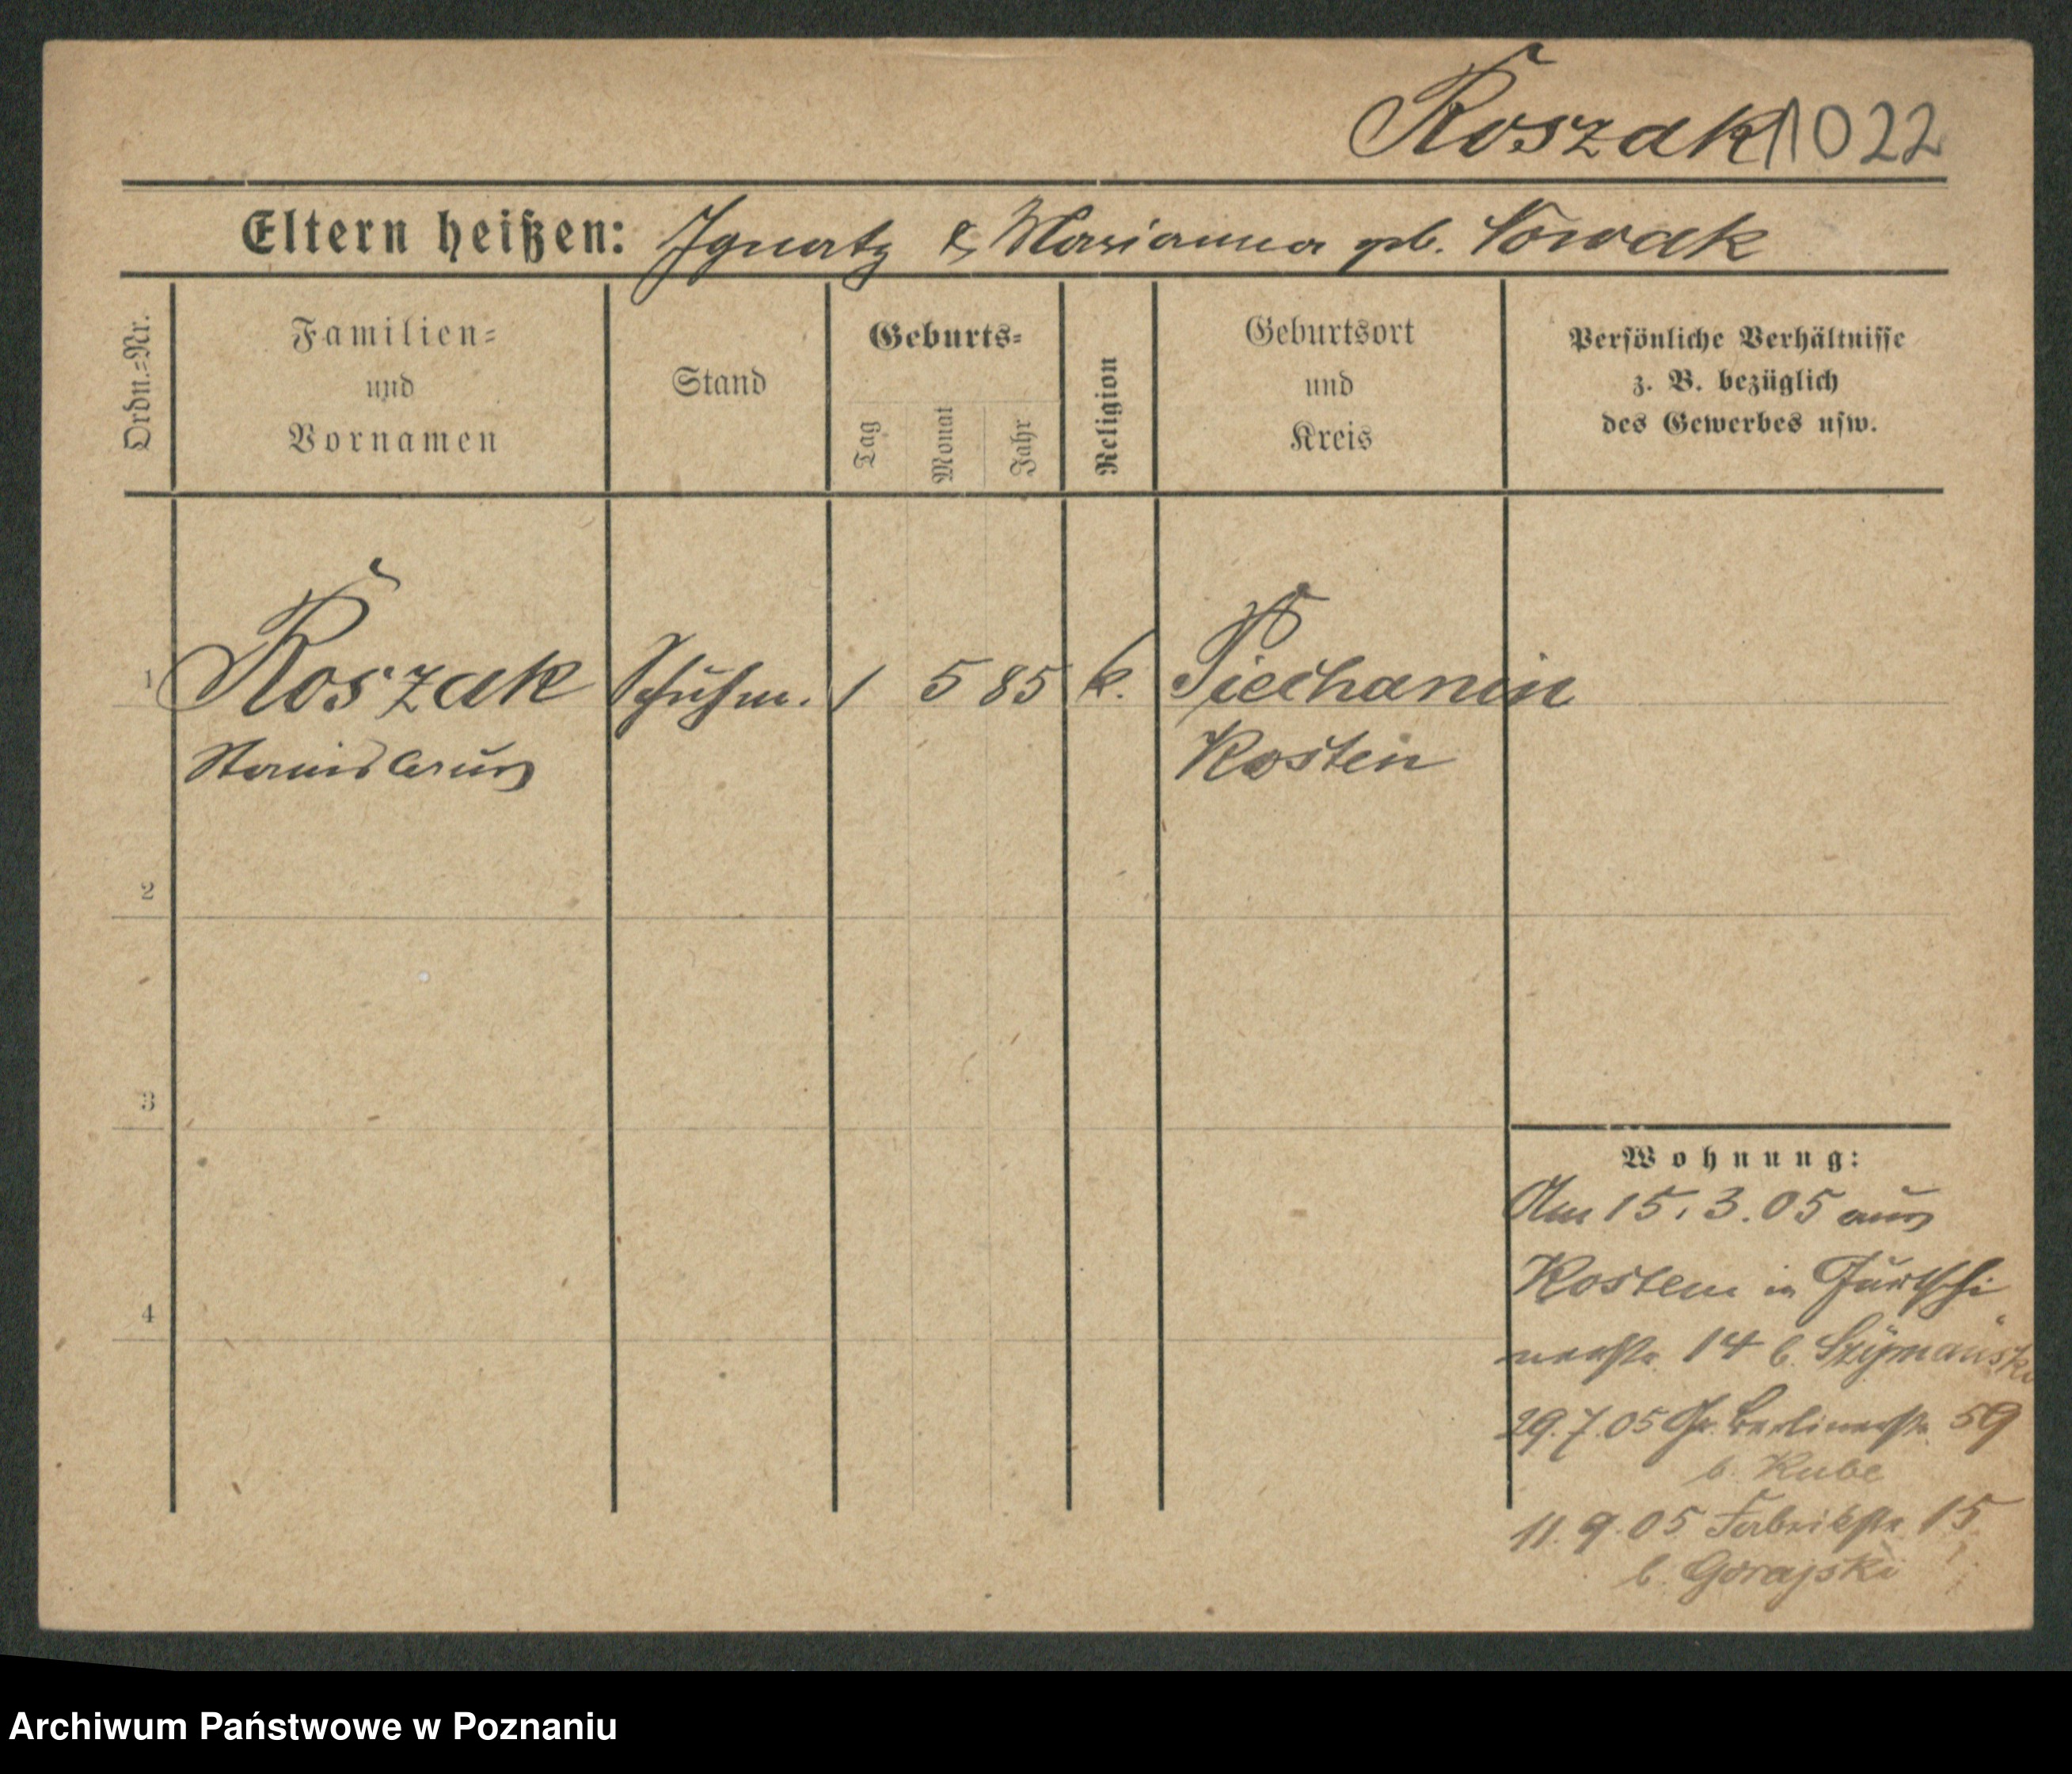 Roszak 1022
Eltern heißen: Ignatz & Marianna geb. Nowak
Ordn.=Nr.
Familien=
und
Vornamen
Stand
Geburts=
Tag
Monat
Jahr
Religion
Geburtsort
und
Kreis
Persönliche Verhältnisse
z. B. bezüglich
des Gewerbes usw.
1 Roszak Schuhm. 1 5 85 k. Piechanin
Stanislaus Kosten
2
3
4
Wohnung:
Am 15.3.05 aus
Kosten in
14 b. Szymański
29.7.05 Gr. Berlinerstr. 59
b. Kube
11.9.05 Fabrikstr. 15
b. Gorajski
Archiwum Państwowe w Poznaniu